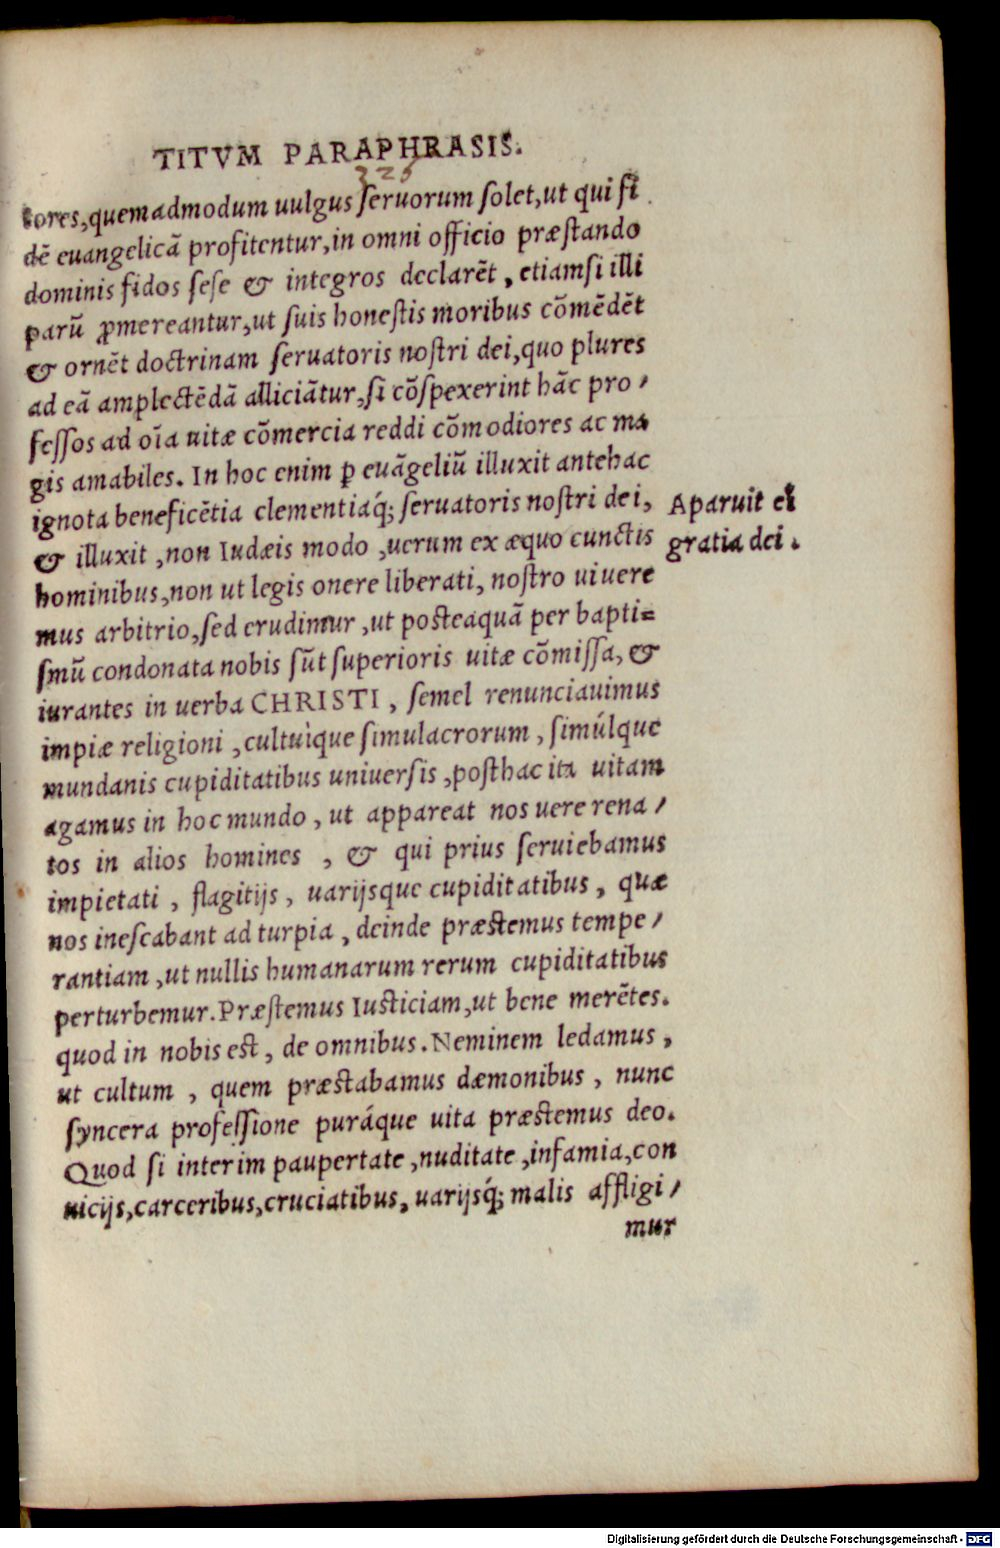 TITVM PARAPHRASIS.
325
tores,quemadmodum uulgus ſeruorum ſolet,ut qui fi
dē euangelicā profitentur,in omni officio præſtando
dominis fidos ſeſe & integros declarēt, etiamſi illi
parū ꝓmereantur,ut ſuis honeſtis moribus cōmēdēt
& ornēt doctrinam ſeruatoris noſtri dei,quo plures
ad eā amplectēdā alliciātur,ſi cōſpexerint hāc pro/
feſſos ad oīa uitæ cōmercia reddi cōmodiores ac ma
gis amabiles. In hoc enim ꝑ euāgeliū illuxit antehac
ignota beneficētia clementiaq́; ſeruatoris noſtri dei,
& illuxit ,non Iudæis modo ,uerum ex æquo cunctis
hominibus,non ut legis onere liberati, noſtro uiuere
mus arbitrio,ſed erudimur ,ut poſteaquā per bapti=
ſmū condonata nobis ſūt ſuperioris uitæ cōmiſſa, &
iurantes in uerba CHRISTI, ſemel renunciauimus
impiæ religioni ,cultuìque ſimulacrorum , ſimúlque
mundanis cupiditatibus uniuerſis ,poſthac ita uitam
agamus in hoc mundo , ut appareat nos uere rena/
tos in alios homines , & qui prius ſeruiebamus
impietati , flagitijs , uarijsque cupiditatibus, quæ
nos ineſcabant ad turpia , deinde præſtemus tempe/
rantiam ,ut nullis humanarum rerum cupiditatibus
perturbemur.Præſtemus Iuſticiam,ut bene merētes.
quod in nobis eſt, de omnibus.Neminem ledamus,
ut cultum , quem præſtabamus dæmonibus , nunc
ſyncera profeſſione puráque uita præſtemus deo.
Quod ſi interim paupertate ,nuditate ,infamia,con
uicijs,carceribus,cruciatibus, uarijsq́; malis affligi/
mur
Aparuit ei
gratia dei.
Digitalisierung gefördert durch die Deutsche Forschungsgemeinschaft - DFG